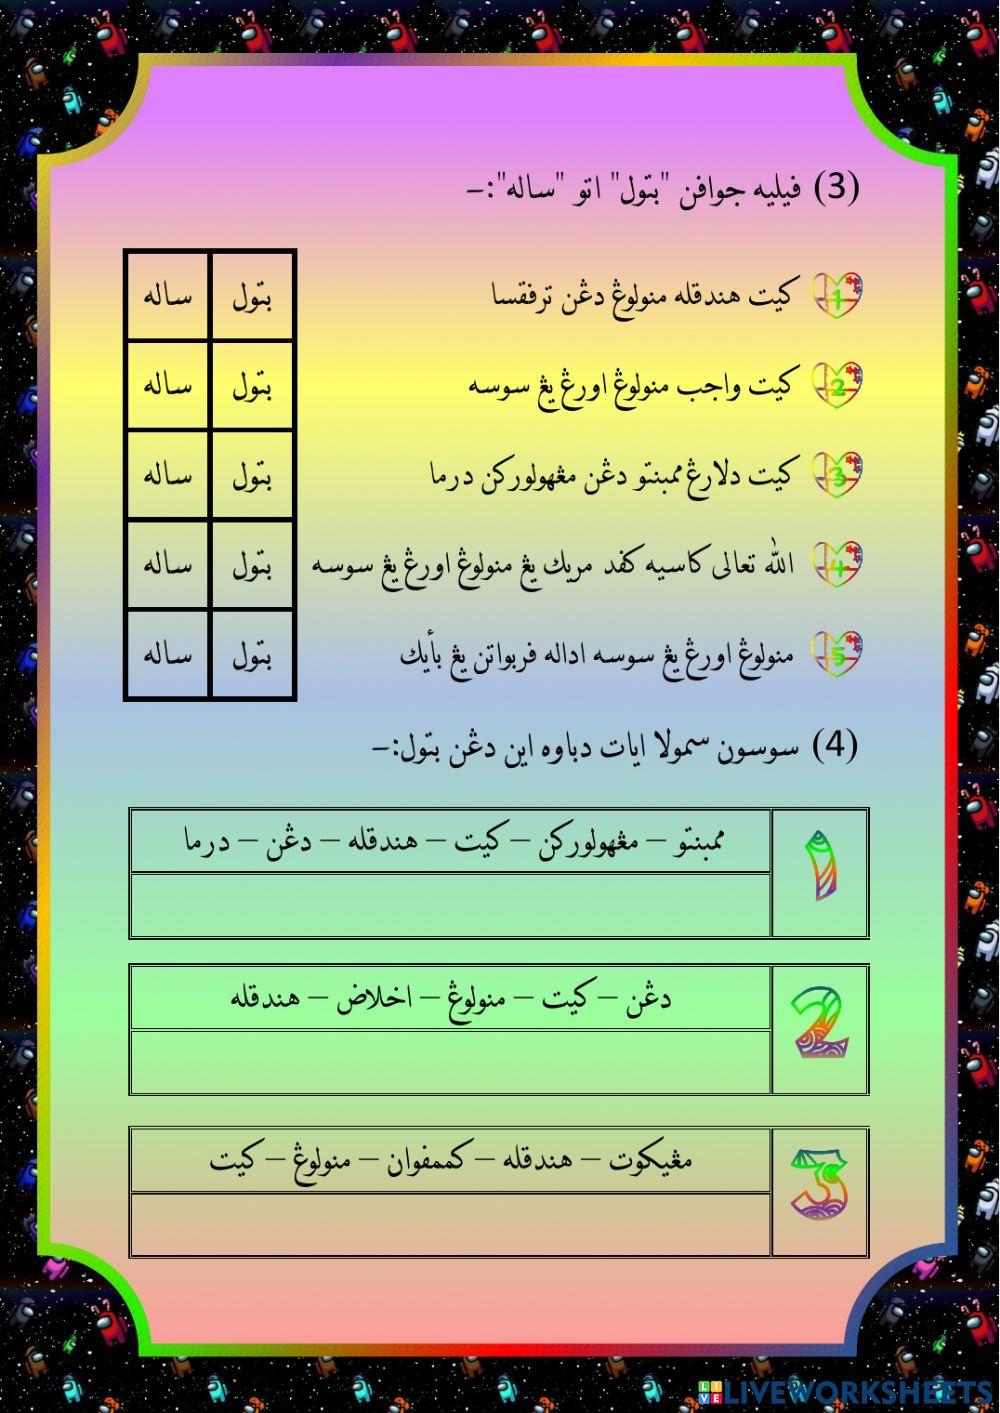 (3) فيليه جوافن "بتول" اتو "ساله":-
1 كيت هندقله منولوڠ دڠن ترفقسا بتول ساله
2 كيت واجب منولوڠ اورڠ يڠ سوسه بتول ساله
3 كيت دلارڠ ممبنتو دڠن مڠهولوركن درما بتول ساله
4 الله تعالى كاسيه كفد مريك يڠ منولوڠ اورڠ يڠ سوسه بتول ساله
5 منولوڠ اورڠ يڠ سوسه اداله فربواتن يڠ بأيك بتول ساله
(4) سوسون سمولا ايات دباوه اين دڠن بتول:-
1 ممبنتو – مڠهولوركن – كيت – هندقله – دڠن – درما
2 دڠن – كيت – منولوڠ – اخلاض – هندقله
3 مڠيكوت – هندقله – كممفوان – منولوڠ – كيت
LIVE LIVEWORKSHEETS